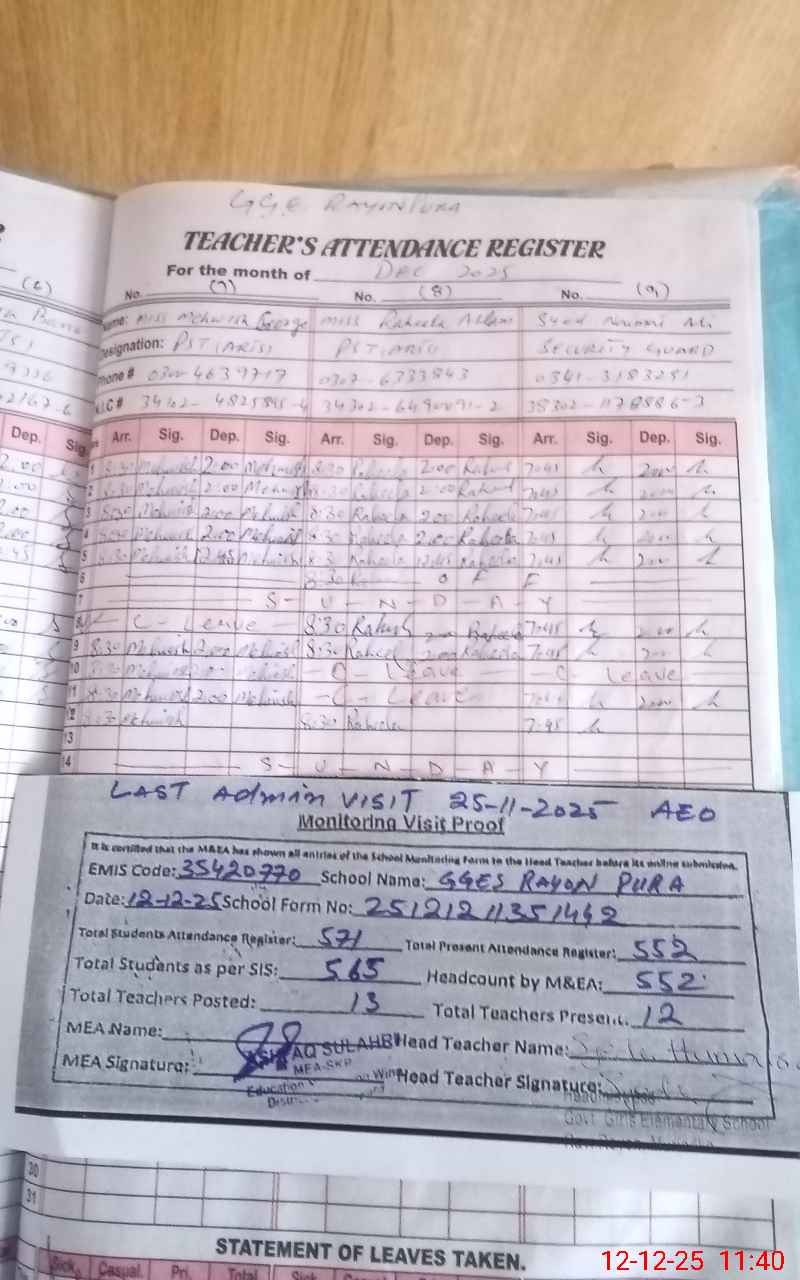 GGE RAYONPURA
TEACHER'S ATTENDANCE REGISTER
For the month of DEC 2025
No. (7) No. (8) No. (9)
(6)
Name: Miss Mehwish George Miss Raheela Aslam Syed Noumi Ali
Designation: PST (ARTS) PST (ARTS) SECURITY GUARD
Phone # 0300-4639717 0307-6733843 0341-3183251
N.I.C # 34302-6490091-2
Dep. Sig. Arr. Sig. Dep. Sig. Arr. Sig. Dep. Sig. Arr. Sig. Dep. Sig.
1 8:30 Mehwish 2:00 Mehwish 8:30 Raheela 2:00 Raheela 7:45 2:00
2 8:30 Mehwish 2:00 Mehwish 8:30 Raheela 2:00 Raheela 7:45 2:00
3 8:30 Mehwish 2:00 Mehwish 8:30 Raheela 2:00 Raheela 7:45 2:00
4 8:30 Mehwish 2:00 Mehwish 8:30 Raheela 2:00 Raheela 7:45 2:00
5 8:30 Mehwish 12:45 Mehwish 8:30 Raheela 12:45 Raheela 7:45
6 8:30 O F F
7 S-U-N-D-A-Y
8 C-Leave 8:30 Raheela 2:00 Raheela 7:45 2:00
9 8:30 Mehwish 2:00 Mehwish 8:30 Raheela 2:00 Raheela 7:45 2:00
10 8:30 Mehwish 2:00 Mehwish -C- Leave -C- Leave
11 8:30 Mehwish 2:00 Mehwish -C- Leave 7:45 2:00
12 8:30 Mehwish 8:30 Raheela 7:45
13
14 S-U-N-D-A-Y
LAST Admin VISIT 25-11-2025 AEO
Monitoring Visit Proof
It is certified that the M&EA has shown all entries of the School Monitoring Form to the Head Teacher before its online submission.
EMIS Code: 35420770 School Name: GGES RAYON PURA
Date: 12-12-25 School Form No: 25121211351442
Total Students Attendance Register: 571 Total Present Attendance Register: 552
Total Students as per SIS: 565 Headcount by M&EA: 552
Total Teachers Posted: 13 Total Teachers Present: 12
MEA Name: Head Teacher Name:
AQ SULAHRI
MEA-SKP
MEA Signature: Head Teacher Signature:
Education Wing
Govt. Girls Elementary School
30
31
STATEMENT OF LEAVES TAKEN.
Sick Casual. Pri. Total Sick
12-12-25 11:40